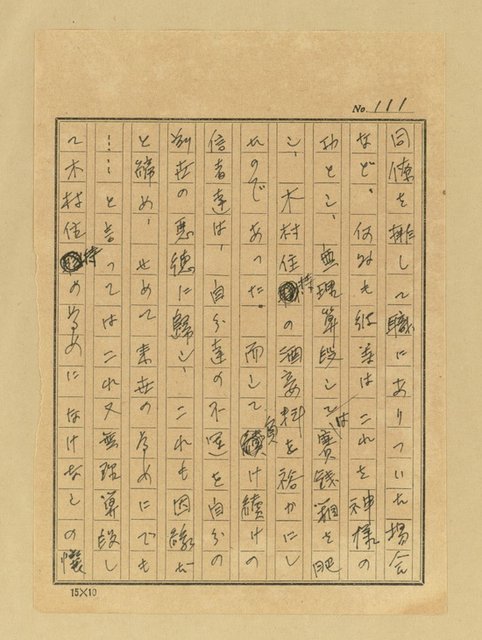 No. 111
同僚を排して職にありついた場合
など。何れも彼等はこれを神様の
功とし、無理算段しては賽銭箱を肥
し、木村住持の酒妾料を裕かにし
たのであった。而して負け續けの
信者達は、自分達の不運を自分の
前世の悪徳に歸し、これも因縁だ
と締め、せめて来世の為めにでも
……と言ってはこれ又無理算段し
て木村住持の為めになけなしの懐
15×10